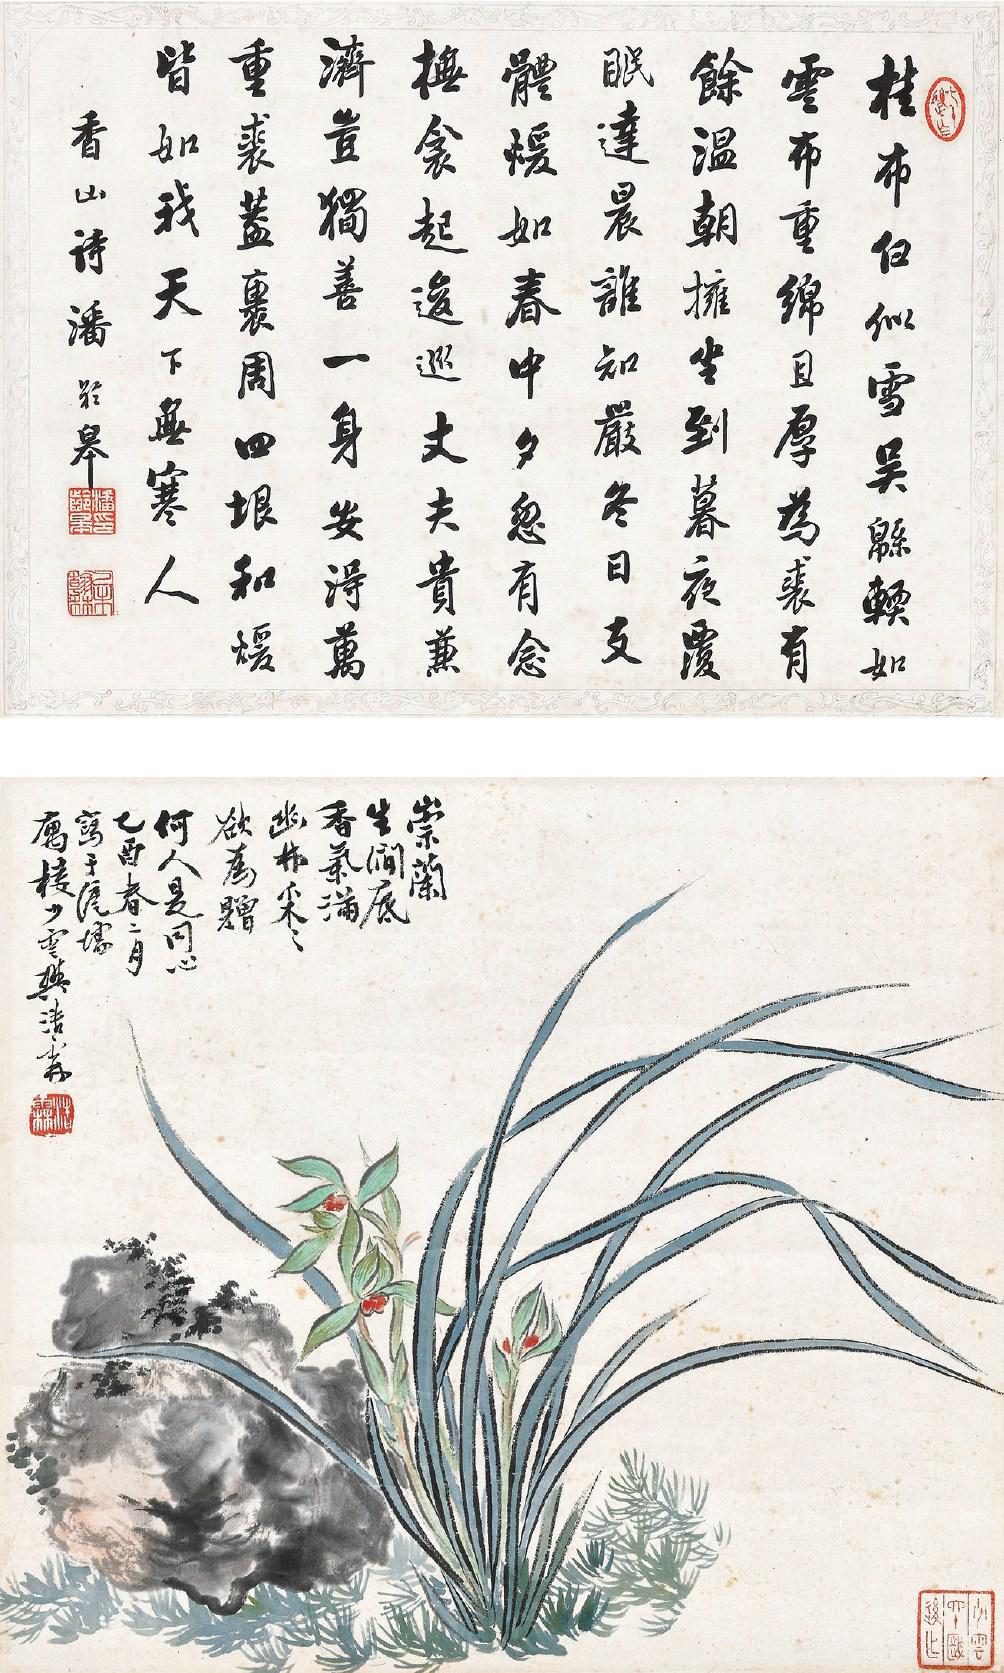 桂布白似雪吴緜輭如
雲布重綿且厚為裘有
餘温朝擁坐到暮夜覆
眠達晨誰知嚴冬日支
體煖如春中夕忽有念
撫衾起逡巡丈夫貴兼
濟豈獨善一身安得萬
重裘蓋裹周四垠和煖
皆如我天下無寒人
香山詩潘齡皋
崇蘭
生澗底
香氣滿
幽林采之
欲為贈
何人是同心
乙酉春二月
寫于滬壖
寓樓少雲樊浩霖